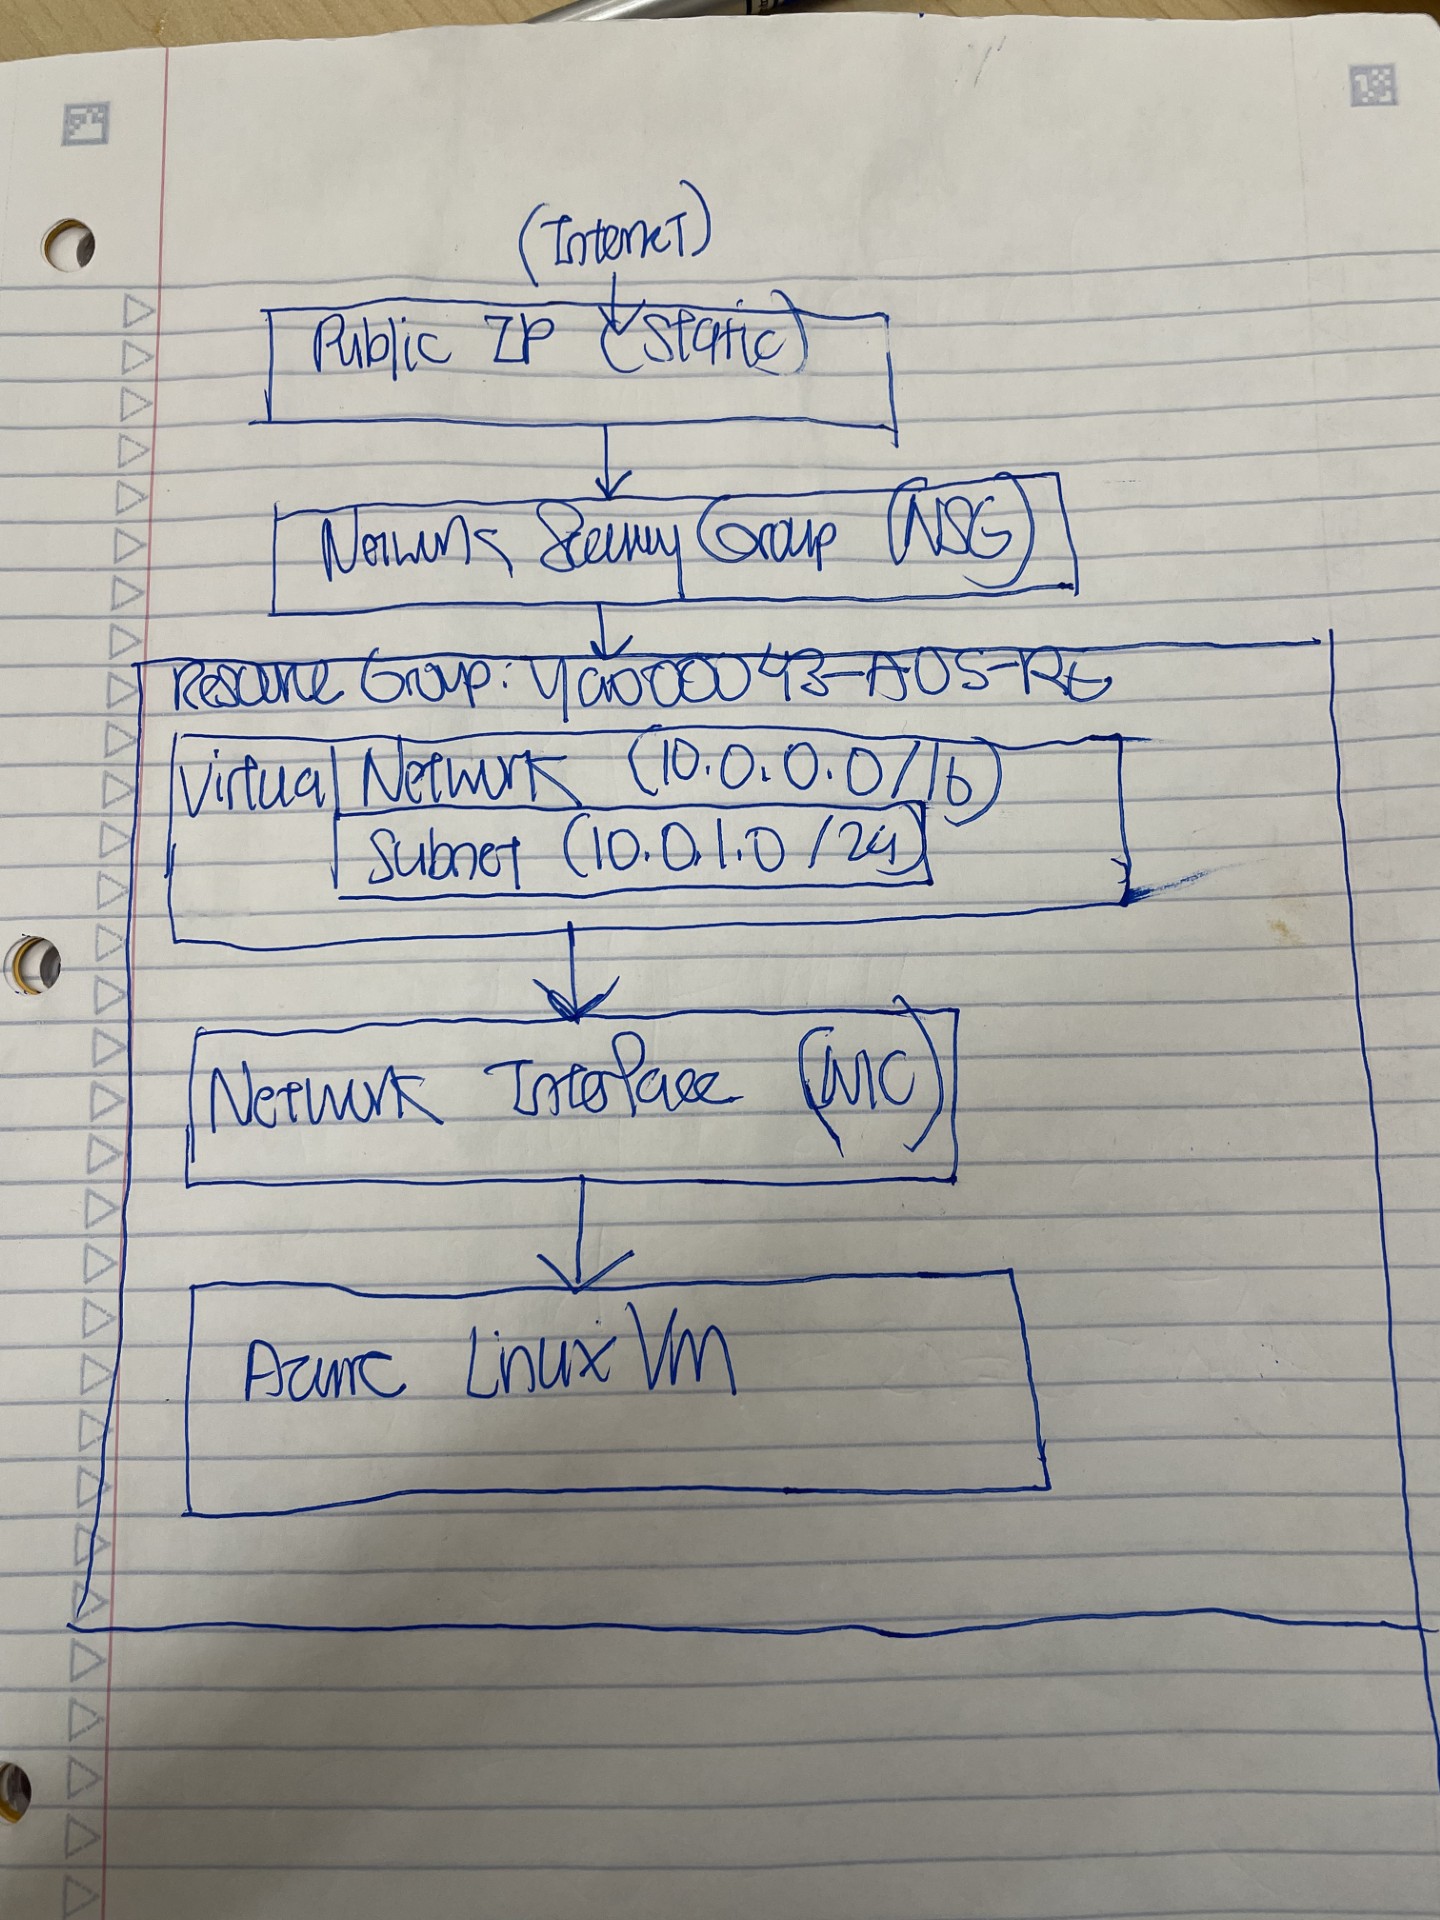 (Internet)
Public IP (Static)
Network Security Group (NSG)
Resource Group: yao00043-A05-RG
Virtual Network (10.0.0.0/16)
Subnet (10.0.1.0/24)
Network Interface (NIC)
Azure Linux VM